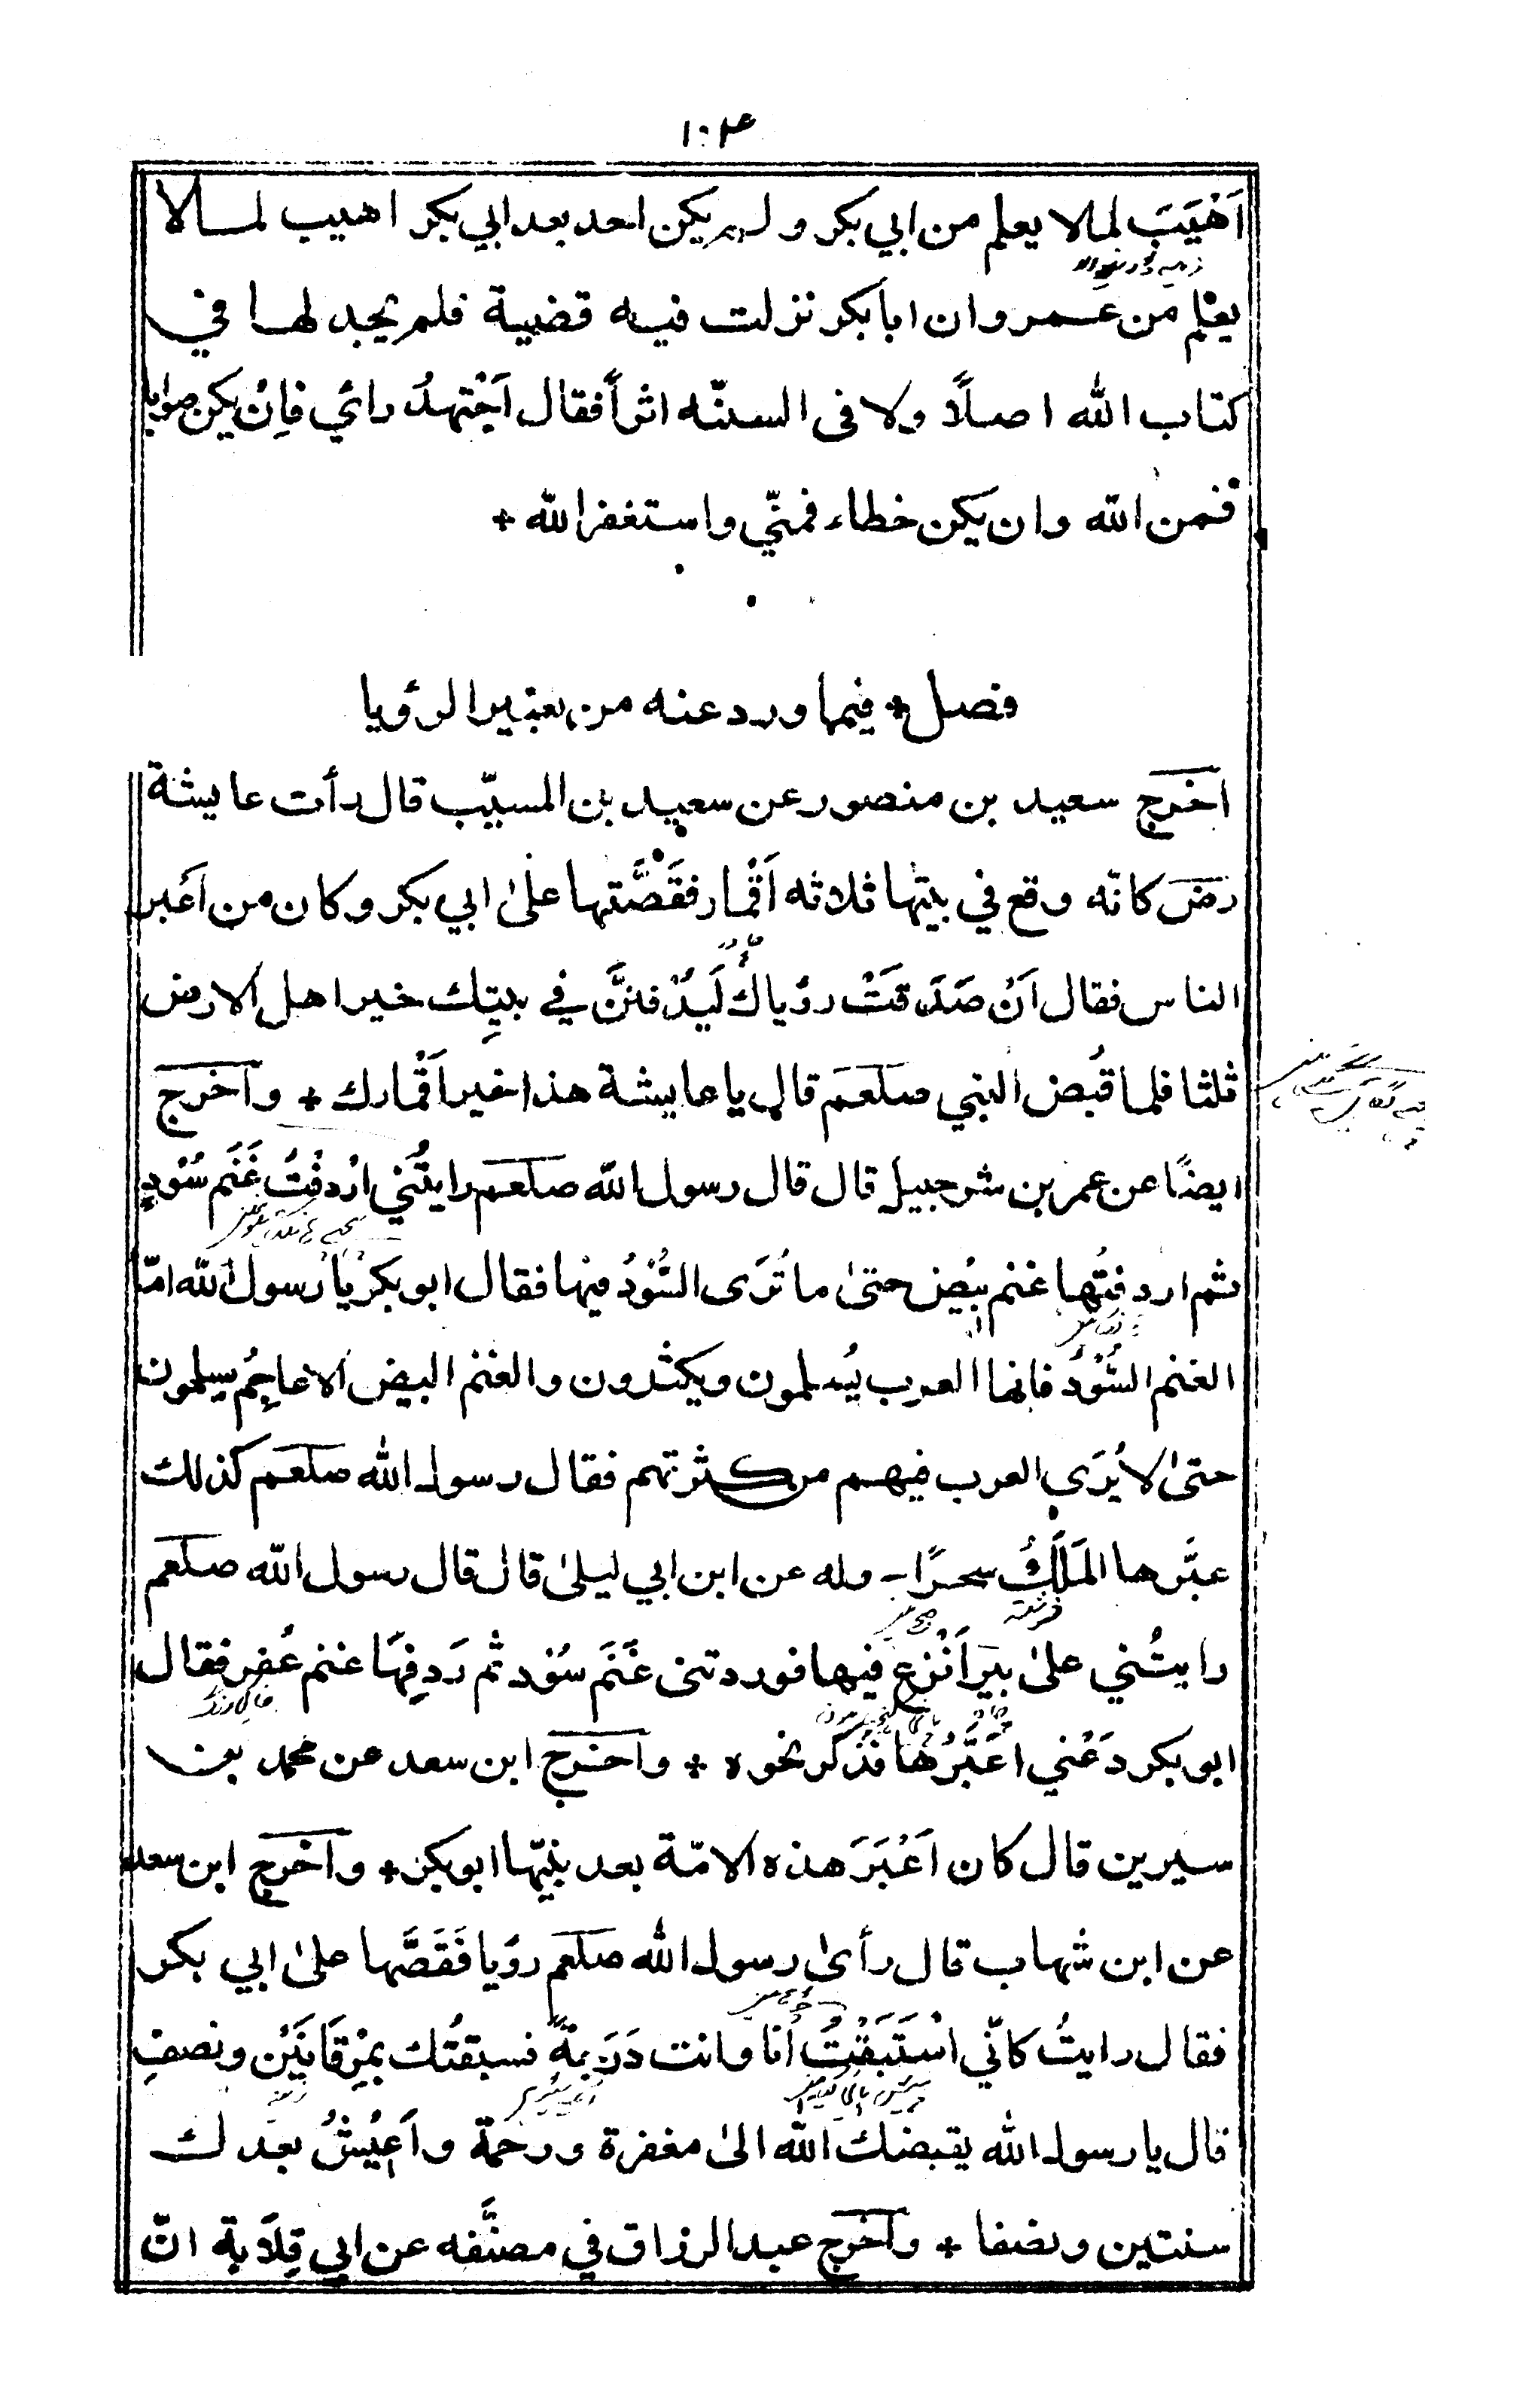 ١٠٤
اَهْيَبَ لما لا يعلم من ابي بكر ولم يكن احد بعد ابي بكر اهيب لما لا
يعلم من عمر وان ابا بكر نزلت فيه قضية فلم يجد لها في
كتاب الله اصلاً ولا فى السنّه اثراً فقال اَجْتهدُ رائي فاِنْ يكن صوابا
فمن الله وان يكن خطاء فمنّي واستغفر الله +
فصل + فيما ورد عنه من تعبير الرؤيا
اخرج سعيد بن منصور عن سعيد بن المسيّب قال رأت عايشة
رضَ كانّه وقع في بيتها ثلاثه اَقْمار فقَصَّتها علىٰ ابي بكر وكان من اَعْبر
الناس فقال اَنْ صَدَقَتْ رؤياكِ لَيدْفننَّ في بيتِك خير اهل الارض
ثلثا فلما قُبض النبي صلعم قال يا عايشة هذا خير اَقْمارك + واخرج
ايضًا عن عمر بن شرحبيل قال قال رسول الله صلعم رايتُني ارْدفْتُ غَنَم سُوْدٍ
ثم اردفتُها غنم بيْض حتىٰ ما تُرَى السُّوْدُ فيها فقال ابو بكر يا رسول الله امّا
الغنم السُّوْدُ فانها العرب يُسلمون ويكثرون والغنم البيض الاعاجِمُ يسلمون
حتىٰ لا يُرَى العرب فيهم من كثرتهم فقال رسول الله صلعم كذلك
عبَّرها المَلَكُ سحرًا – وله عن ابن ابي ليلىٰ قال قال رسول الله صلعم
رايتُني علىٰ بيرٍ اَنْزع فيها فوردتنى غَنَم سُوْد ثم رَدِفهَا غنم عُفر فقال
ابو بكر دَعْني اعَبّرُهَا فذكر نحوه + واخرج ابن سعد عن محمد بن
سيرين قال كان اَعْبَرَ هذه الامّة بعد نبيّها ابو بكر + واخرج ابن سعد
عن ابن شهاب قال رأىٰ رسول الله صلعم رؤيا فَقَصَّها علىٰ ابي بكر
فقال رايتُ كانّي اسْتَبَقْتُ اَنا وانت دَرَجةً فسبقتُك بمِرْقَاتَيْن ونصفِ
قال يا رسول الله يقبضك الله الىٰ مغفرة ورحمة واَعِيْشُ بعدك
سنتين ونصفا + واخرج عبد الرزاق في مصنَّفه عن ابي قِلَابة انّ